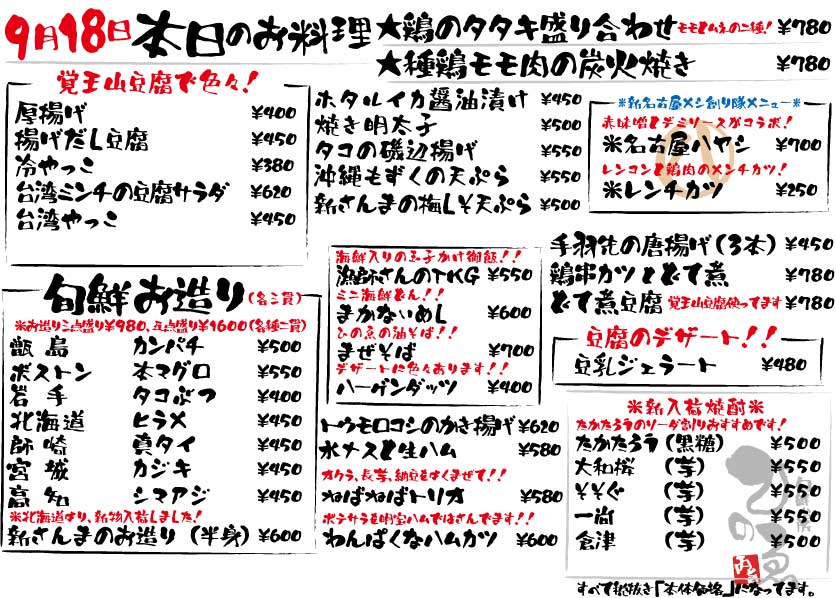 9月18日 本日のお料理
★鶏のタタキ盛り合わせ モモとムネの二種! ¥780
★種鶏モモ肉の炭火焼き ¥780
覚王山豆腐で色々!
厚揚げ ¥400
揚げだし豆腐 ¥450
冷やっこ ¥380
台湾ミンチの豆腐サラダ ¥620
台湾やっこ ¥450
ホタルイカ醤油漬け ¥450
焼き明太子 ¥500
タコの磯辺揚げ ¥550
沖縄もずくの天ぷら ¥550
新さんまの梅しそ天ぷら ¥500
※新名古屋メシ創り隊メニュー※
赤味噌とデミソースがコラボ!
※名古屋ハヤシ ¥700
レンコンと鶏肉のメンチカツ!
※レンチカツ ¥250
旬鮮お造り(各二貫)
※お造り三点盛り¥980、五点盛り¥1600(各種二貫)
甑島 カンパチ ¥500
ボストン 本マグロ ¥550
岩手 タコぶつ ¥400
北海道 ヒラメ ¥450
師崎 真タイ ¥450
宮城 カジキ ¥450
高知 シマアジ ¥450
※北海道より、新物入荷しました!
新さんまのお造り(半身) ¥600
海鮮入りの玉子かけ御飯!!
漁師さんのTKG ¥550
ミニ海鮮どん!!
まかないめし ¥600
ひの魚の油そば!!
まぜそば ¥700
デザートに色々あります!!
ハーゲンダッツ ¥400
トウモロコシのかき揚げ ¥620
水ナスと生ハム ¥580
オクラ、長芋、納豆をよくまぜて!!
ねばねばトリオ ¥580
ポテサラを明宝ハムではさんでます!!
わんぱくなハムカツ ¥600
手羽先の唐揚げ(3本) ¥450
鶏串カツとどて煮 ¥780
どて煮豆腐 覚王山豆腐使ってます ¥780
豆腐のデザート!!
豆乳ジェラート ¥480
※新入荷焼酎※
たかたろうのソーダ割りおすすめです!
たかたろう(黒糖) ¥500
大和桜(芋) ¥550
そそぐ(芋) ¥500
一尚(芋) ¥550
倉津(芋) ¥500
すべて税抜き「本体価格」になってます。